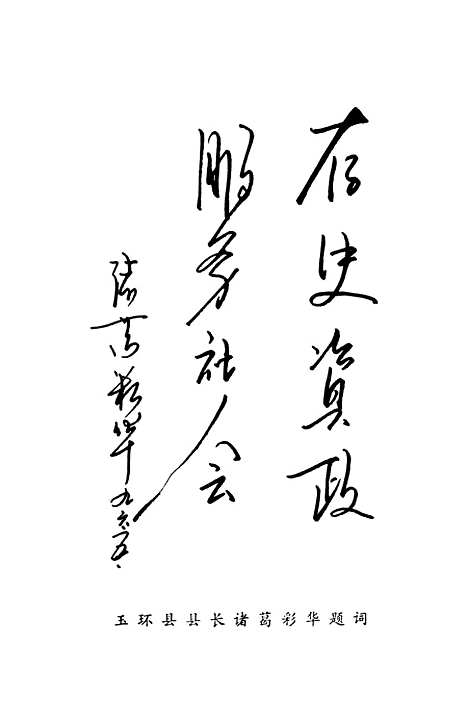 存史資政
服务社会
诸葛彩华 九六.五.
玉环县县长诸葛彩华题词